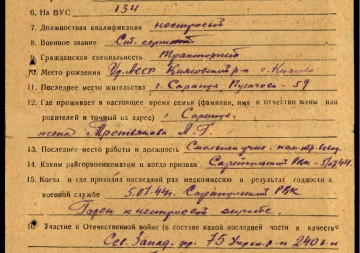 6. На ВУС 134
7. Должностная квалификация нестроевой
8. Военное звание Ст. сержант
9. Гражданская специальность Тракторист
10. Место рождения Уд. АССР Киясовский р-н с. Киясово
11. Последнее место жительства г. Сарапул Пугачева - 59
12. Где проживает в настоящее время семья (фамилия, имя и отчество жены или
родителей и точный их адрес) г. Сарапул,
жена Третьякова Л. Г.
13. Последнее место работы и должность
14. Каким райгорвоенкоматом и когда призван Сарапульский РВК -
15. Когда и где проходил последний раз медкомиссию и результат годности к
военной службе 5.01.44г. Сарапульский РВК
Годен к нестроевой службе.
16. Участие в Отечественной войне (в составе какой последней части в качестве
Сев. Запад. фр. 75 р-н 240